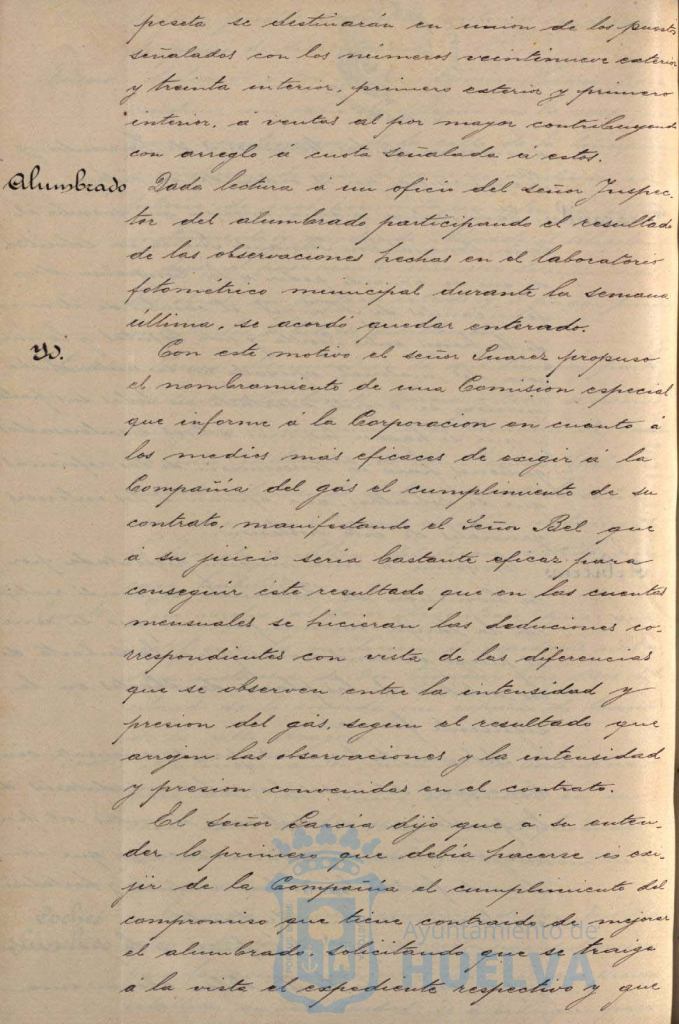 peseta se destinarán en union de los puestos
señalados con los números veintinueve exterior
y treinta interior, primero exterior y primero
interior, á ventas al por mayor contribuyendo
con arreglo á cuota señalada á estos.
Alumbrado Dada lectura á un oficio del señor Inspec-
tor del alumbrado participando el resultado
de las observaciones hechas en el laboratorio
fotométrico municipal durante la semana
última, se acordó quedar enterado.
Yd. Con este motivo el señor Suarez propuso
el nombramiento de una Comisión especial
que informe á la Corporacion en cuanto á
los medios más eficaces de exigir á la
Compañia del gás el cumplimiento de su
contrato, manifestando el Señor Bel que
á su juicio seria bastante eficaz para
conseguir éste resultado que en las cuentas
mensuales se hicieran las deduciones co-
rrespondientes con vista de las diferencias
que se observen entre la intensidad y
presion del gás, segun el resultado que
arrojen las observaciones y la intensidad
y presion convenidas en el contrato.
El señor Garcia dijo que á su enten-
der lo primero que debia hacerse és exi-
jir de la Compañia el cumplimiento del
compromiso que tiene contraido de mejorar
el alumbrado, solicitando que se traiga
á la vista el expediente respectivo y que
Ayuntamiento de
HUELVA